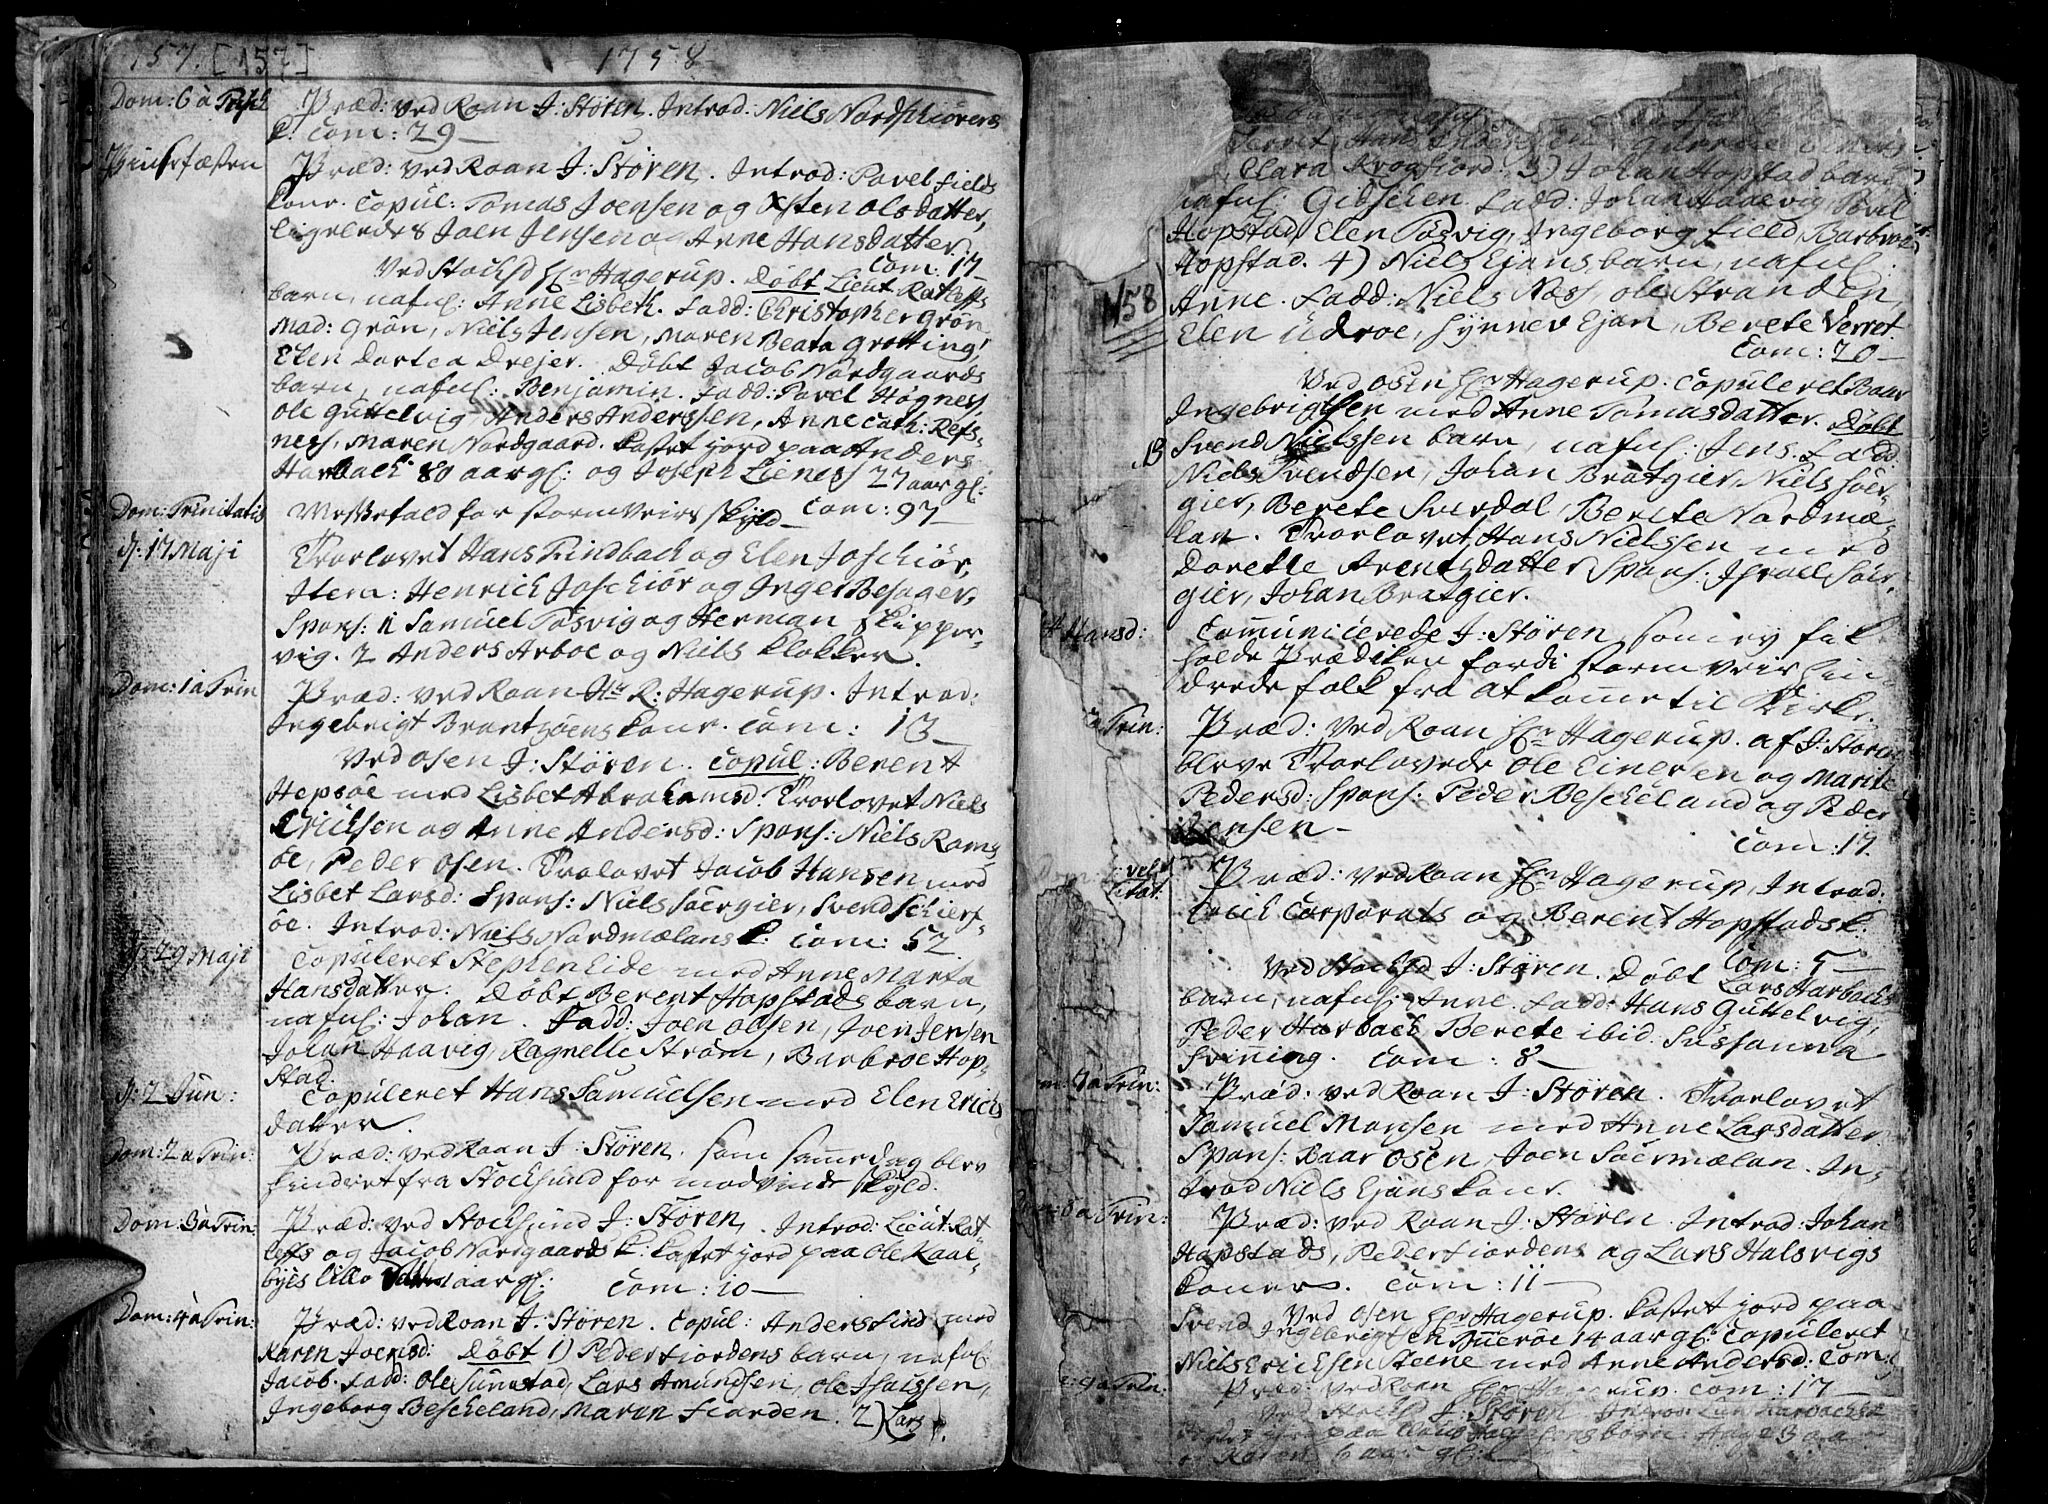 157. [157] 1758
Dom: 6 a Pasch Præd: ved Roan J: Støren. Introd: Niels Nordschiørens
K. Com: 29 —
Pintzefæsten Præd: ved Roan J: Støren. Introd: Povel Fields
Konr. Copul: Tomas Joensen og Osten Olsdatter,
ligeledes Joen Jensen og Anne Hansdatter.
Com: 17
Ved Stochsd Hr Hagerup. Døbt Lieut Ratleffs
barn, nafnl: Anne Lisbeth. Fadd: Christopher Grøn,
Mad: Grøn, Niels Jensen, Maren Beata Grotting,
Elen Dortea Drejer. Døbt Jacob Nordgaards
barn, nafnl: Benjamin. Fadd: Povel Høgness,
Ole Guttelvig, Anders Anderssen, Anne Cath: Refs-
ness, Maren Nordgaard. Kastet jord paa Anders
Harbach 80 aar gl: og Joseph Lieness 27 aar gl:
Com: 97 —
Dom: Trinitatis Messefald for stormveirs skyld —
d: 17 Maji Trorlovet Hans Tindbach og Elen Joschiør,
Item: Henrich Joschiør og Inger Besager,
Spons: 1 Samuel Tosvig og Herman Skipper-
vig. 2 Anders Arboe og Niels Klokker.
Dom: 1 a Trin Præd: ved Roan Hr R: Hagerup. Introd:
Ingebrigt Brantzøens Konr. Com: 13 —
Ved Osen J: Støren. Copul: Berent
Hepsøe med Lisbet Abrahamsd: Trorlovet Niels
Erichsen og Anne Andersd: Spons: Niels Rams-
øe, Peder Osen. Trolovet Jacob Hansen med
Lisbet Larsd: Spons: Niels Søergier, Svend Schierf-
øe. Introd: Niels Nordmælans K: Com: 52.
d: 29 Maji Copuleret Stephen Eide med Anne Marta
Hansdatter. Døbt Berent Hopstads barn,
nafnl: Johan. Fadd: Joen Olsen, Joen Jensen
Johan Haavig, Ragnelle Strøm, Barbroe Hop-
stad.
d: 2 Jun: Copuleret Hans Samuelsen med Elen Erichs
datter.
Dom: 2 a Trin: Præd: ved Roan J: Støren. som samme dag blev
hindret fra Stochsund for modvinds skyld.
Dom: 3 a Trin: Præd: ved Stochsund J: Støren. Introd: Lieut Rat-
leffs og Jacob Nordgaards K: Kastet jord paa Ole Kaal-
byes lille 1 aar gl: Com: 10 —
Dom: 4 a Trin: Præd: ved Roan J: Støren. Copul: Anders Find med
Karen Joensd: Døbt 1) Peder Fiordens barn, nafnl:
Jacob. Fadd: Ole Sumstad, Lars Amundsen, Ole Isaissen,
Ingeborg Bescheland, Maren Fiorden. 2) Lars
Verret, Hans
Clara Krogfiord. 3) Johan Hopstad barn
nafnl: Gidselen. Fadd: Johan Haavig, Povel
Hopstad, Elen Tosvig, Ingeborg Field, Barbroe
158
Hopstad. 4) Niels Ejans barn, nafnl:
Anne. Fadd: Niels Næss, Ole Stranden,
Elen Udroe, Synnev Ejan, Berete Verret.
Com: 20 —
Ved Osen Hr Hagerup. Copuleret Baar
Ingebrigtsen med Anne Tomasdatter. Døbt
Svend Nielssen barn, nafnl: Jens. Fadd:
Niels Svendsen, Johan Bratgier, Niels Søer-
gier, Berete Sverdal, Berete Nordmæ-
lan. Trorlovet Hans Nielssen med
Dorethe Arentzdatter Spons: Israel Søer-
gier, Johan Bratgier.
Hansd: Communicerede J: Støren som ey fik
holde Prædiken fordi stormveir hin-
drede folk fra at komme til Kirke.
a Trin: Præd: ved Roan Hr Hagerup. af J: Støren
bleve Trorlovede Ole Einersen og Marite
Pedersd: Spons: Peder Bescheland og Peder
Jensen —
Com: 17.
Dom: vel
Præd: ved Roan Hr Hagerup, Introd:
Erich Corporals og Berent Hopstads K.
Com: 5 —
Ved Stochsd J: Støren. Døbt Lars Harbachs
barn, nafnl: Anne. Fadd: Hans Guttelvig,
Peder Harbach Berete ibid. Sussanna
Svinning. Com: 8 —
7 a Trin: Præd: ved Roan J: Støren. Trorlovet
Samuel Monsen med Anne Larsdatter
Spons: Baar Osen, Joen Søermælan. In-
trod Niels Ejans Konr.
8 a Trin: Præd: ved Roan J: Støren. Introd: Johan
Hopstads, Peder Fiordens og Lars Halsvigs
Koner. Com: 11 —
Ved Osen Hr Hagerup. Kastet jord paa
Svend Ingebrigtsen Buerøe 14 aar gl: Copuleret
Niels Erichsen Steene med Anne Andersd: Com:
9 a Trin: Præd: ved Roan Hr Hagerup. Com: 17 —
Ved Stochsd J: Støren Introd: Lars Harbachs K
paa barn: Hage 3 aar
og Karen 6 aar gl: